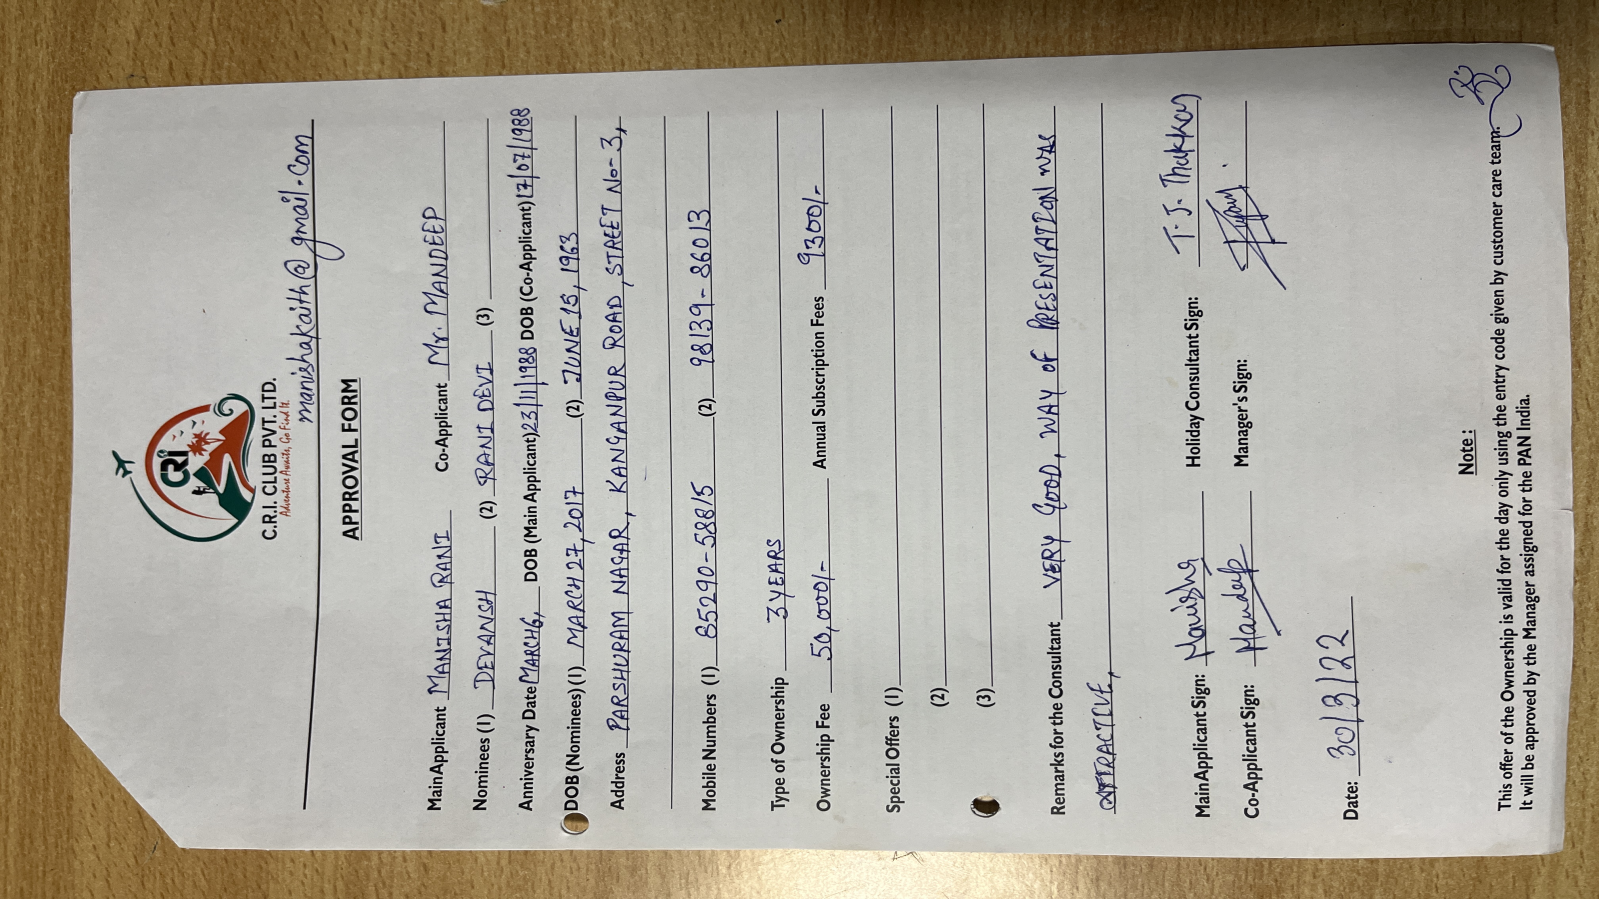 CRI
C.R.I. CLUB PVT. LTD.
Adventure Awaits, Go Find It.
manishakaith@gmail.com
APPROVAL FORM
Main Applicant MANISHA RANI Co-Applicant Mr. MANDEEP
Nominees (1) DEVANSH (2) RANI DEVI (3)
Anniversary Date MARCH6, DOB (Main Applicant) 23/11/1988 DOB (Co-Applicant) 17/07/1988
DOB (Nominees) (1) MARCH 27, 2017 (2) JUNE 15, 1963
Address PARSHURAM NAGAR, KANGANPUR ROAD, STREET No-3,
Mobile Numbers (1) 85290-58815 (2) 98139-86013
Type of Ownership 3 YEARS
Ownership Fee 50,000/- Annual Subscription Fees 9300/-
Special Offers (1)
(2)
(3)
Remarks for the Consultant VERY GOOD, WAY OF PRESENTATION WAS
ATTRACTIVE,
Main Applicant Sign: Manisha Holiday Consultant Sign: T.J. Thakkar
Co-Applicant Sign: Mandeep Manager's Sign:
Date: 30/3/22
Note :
This offer of the Ownership is valid for the day only using the entry code given by customer care team.
It will be approved by the Manager assigned for the PAN India.